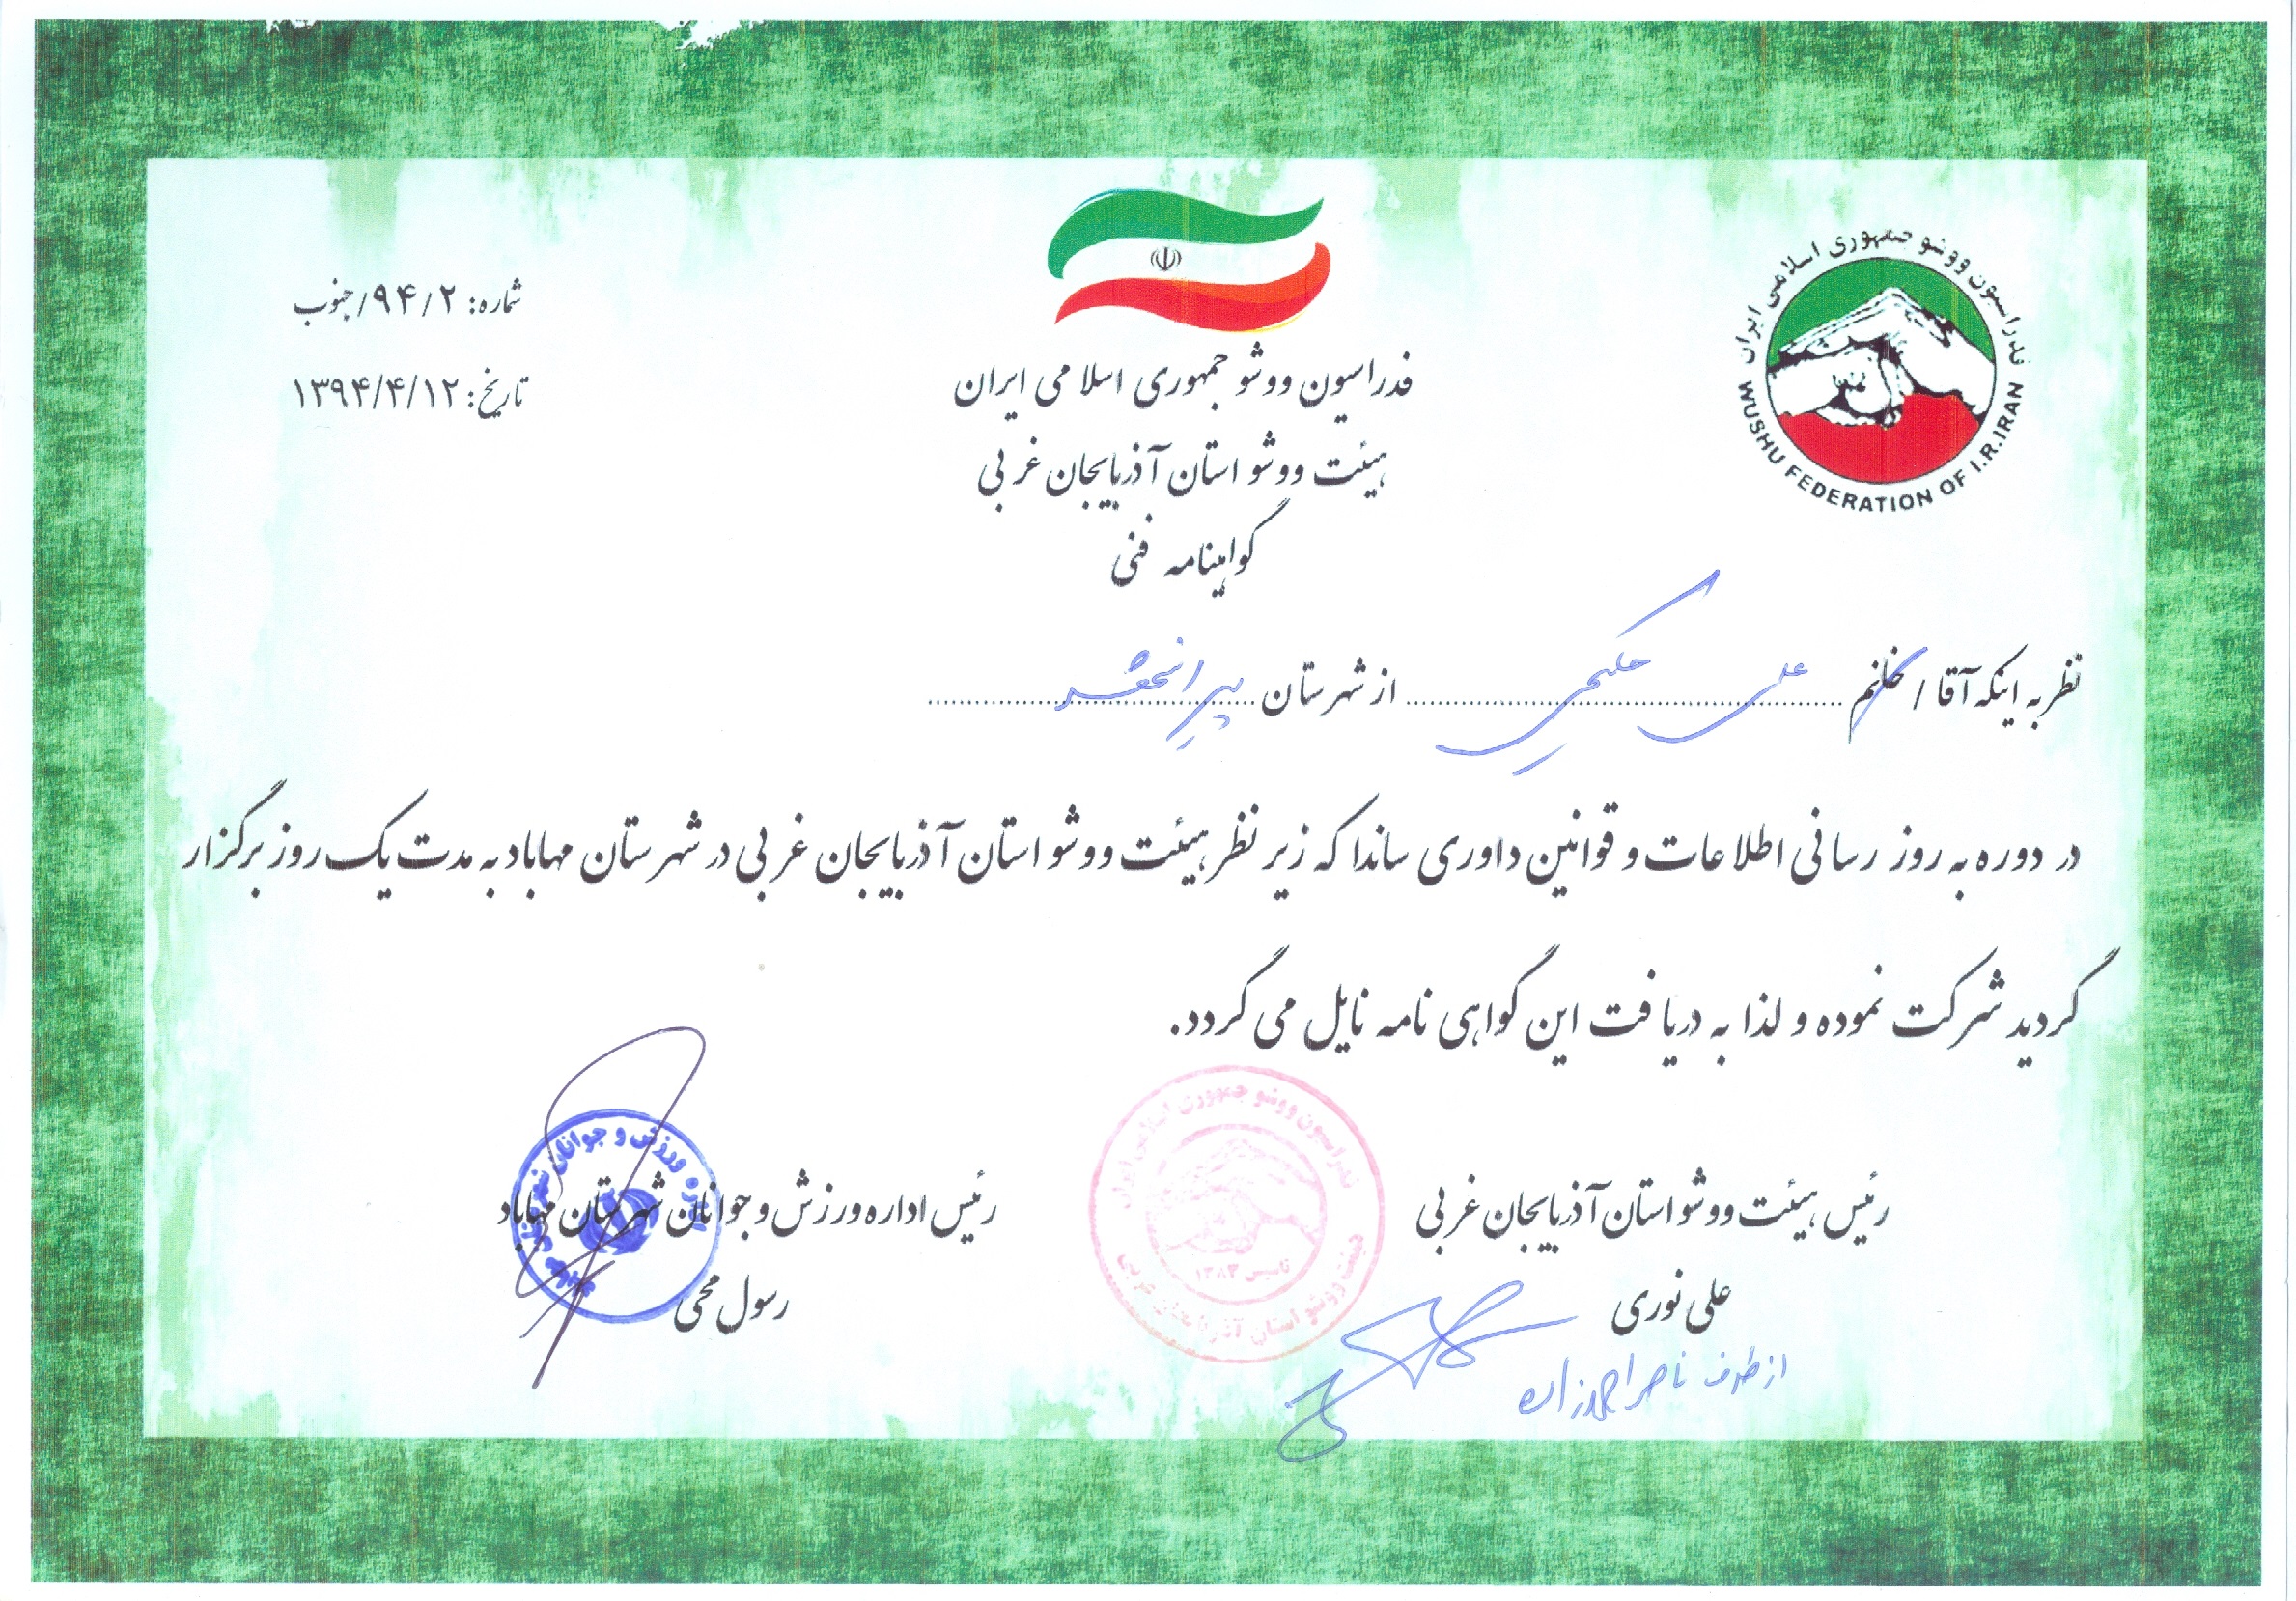 فدراسیون ووشو جمهوری اسلامی ایران
WUSHU FEDERATION OF I.R.IRAN
شماره: ۹۴/۲/جنوب
تاریخ: ۱۳۹۴/۴/۱۲
فدراسیون ووشو جمهوری اسلامی ایران
هیئت ووشو استان آذربایجان غربی
گواهینامه فنی
نظر به اینکه آقا / خانم علی حکیمی از شهرستان پیرانشهر
در دوره به روز رسانی اطلاعات و قوانین داوری ساندا که زیر نظر هیئت ووشو استان آذربایجان غربی در شهرستان مهاباد به مدت یک روز برگزار
گردید شرکت نموده و لذا به دریافت این گواهی نامه نایل می گردد.
رئیس هیئت ووشو استان آذربایجان غربی
علی نوری
از طرف ناصر احمدزاده
فدراسیون ووشو جمهوری اسلامی ایران
تاسیس ۱۳۸۳
هیئت ووشو استان آذربایجان غربی
رئیس اداره ورزش و جوانان شهرستان مهاباد
رسول محی
ورزش و جوانان